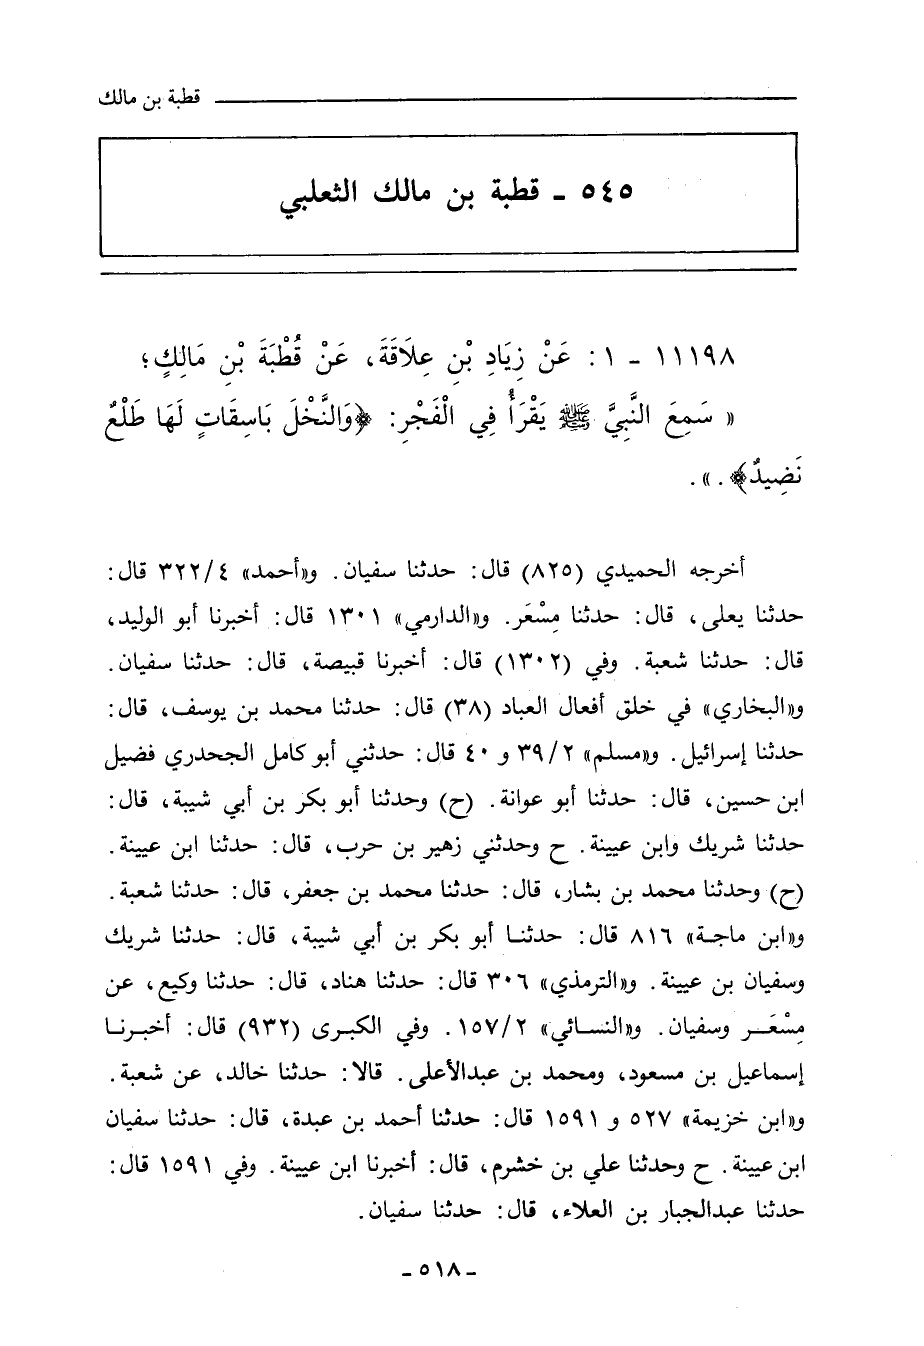 قطبة بن مالك
٥٤٥ ـ قطبة بن مالك الثعلبي
١١١٩٨ ـ ١ : عَنْ زِيَادِ بْنِ عِلَاقَةَ، عَنْ قُطْبَةَ بْنِ مَالِكٍ؛
« سَمِعَ النَّبِيَّ ﷺ يَقْرَأُ فِي الْفَجْرِ: ﴿وَالنَّخْلَ بَاسِقَاتٍ لَهَا طَلْعٌ
نَضِيدٌ﴾ . » .
أخرجه الحميدي (٨٢٥) قال: حدثنا سفيان. و«أحمد» ٣٢٢/٤ قال:
حدثنا يعلى، قال: حدثنا مِسْعَر. و«الدارمي» ١٣٠١ قال: أخبرنا أبو الوليد،
قال: حدثنا شعبة. وفي (١٣٠٢) قال: أخبرنا قبيصة، قال: حدثنا سفيان.
و«البخاري» في خلق أفعال العباد (٣٨) قال: حدثنا محمد بن يوسف، قال:
حدثنا إسرائيل. و«مسلم» ٣٩/٢ و ٤٠ قال: حدثني أبو كامل الجحدري فضيل
ابن حسين، قال: حدثنا أبو عوانة. (ح) وحدثنا أبو بكر بن أبي شيبة، قال:
حدثنا شريك وابن عيينة. ح وحدثني زهير بن حرب، قال: حدثنا ابن عيينة.
(ح) وحدثنا محمد بن بشار، قال: حدثنا محمد بن جعفر، قال: حدثنا شعبة.
و«ابن ماجة» ٨١٦ قال: حدثنا أبو بكر بن أبي شيبة، قال: حدثنا شريك
وسفيان بن عيينة. و«الترمذي» ٣٠٦ قال: حدثنا هناد، قال: حدثنا وكيع، عن
مِسْعَر وسفيان. و«النسائي» ١٥٧/٢. وفي الكبرى (٩٣٢) قال: أخبرنا
إسماعيل بن مسعود، ومحمد بن عبدالأعلى. قالا: حدثنا خالد، عن شعبة.
و«ابن خزيمة» ٥٢٧ و ١٥٩١ قال: حدثنا أحمد بن عبدة، قال: حدثنا سفيان
ابن عيينة. ح وحدثنا علي بن خشرم، قال: أخبرنا ابن عيينة. وفي ١٥٩١ قال:
حدثنا عبدالجبار بن العلاء، قال: حدثنا سفيان.
ـ ٥١٨ ـ